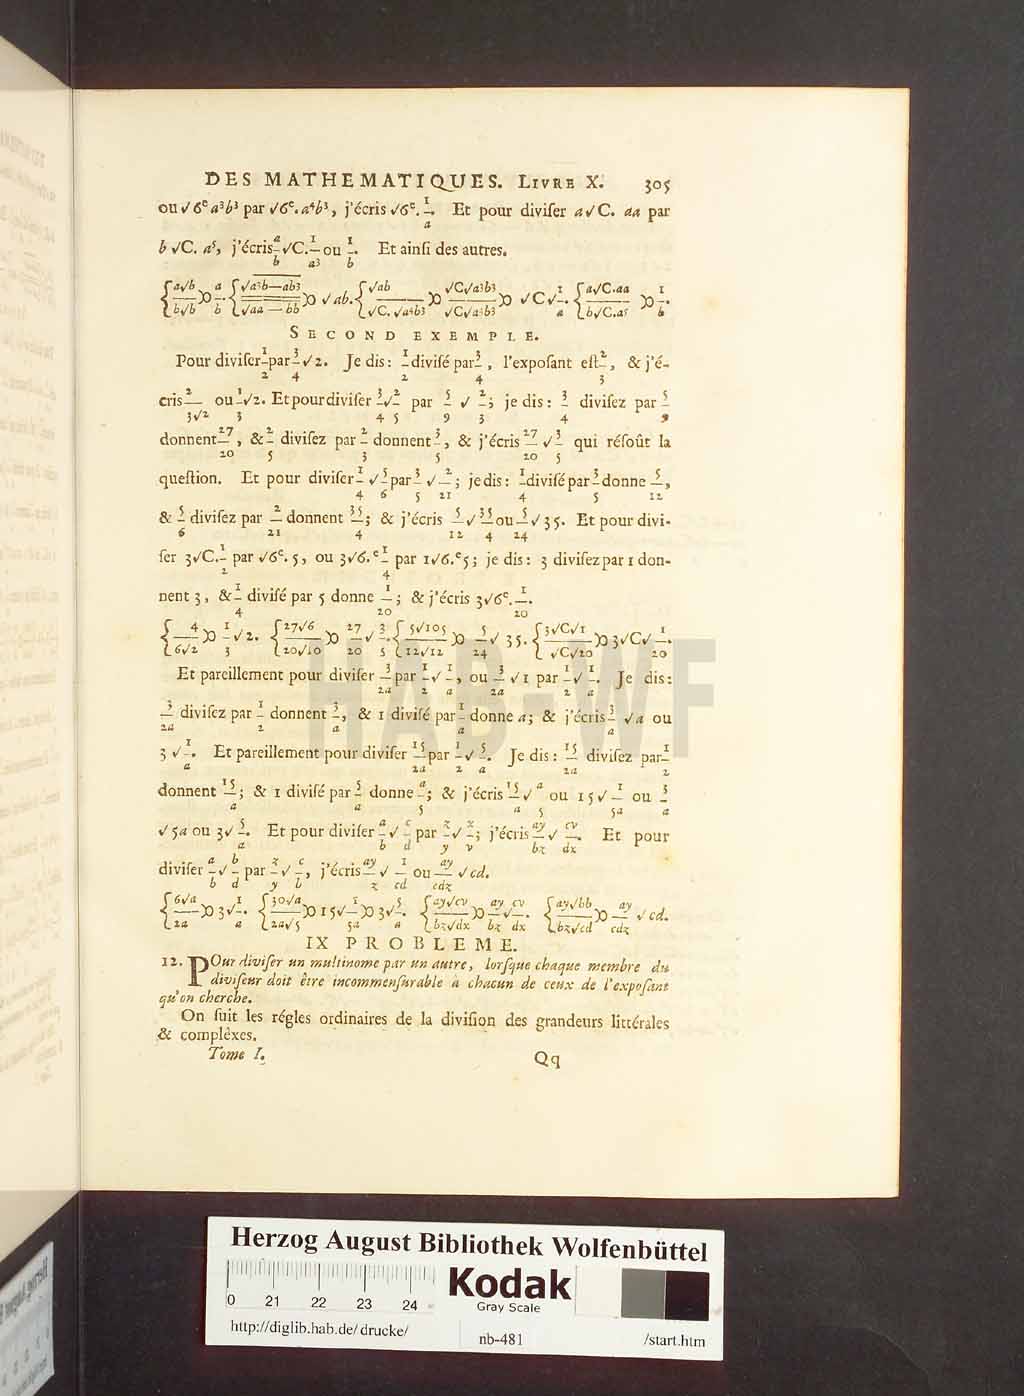 DES MATHEMATIQUES. LIVRE X. 305
ou √6ᵉ a³b³ par √6ᵉ. a⁴b³, j'écris √6ᵉ. 1/a. Et pour diviſer a√C. aa par
b √C. a⁵, j'écris a/b √C. 1/a³ ou 1/b. Et ainſi des autres.
{a√b / b√b ꝏ a/b. {√a³b—ab³ / √aa — bb ꝏ √ab. {√ab / √C. √a⁴b³ ꝏ √C√a³b³ / √C√a⁴b³ ꝏ √C√ 1/a. {a√C.aa / b√C.a⁵ ꝏ 1/b.
SECOND EXEMPLE.
Pour diviſer 1/2 par 3/4 √2. Je dis: 1/2 diviſé par 3/4, l'expoſant eſt 2/3, & j'é-
cris 2/3√2 ou 1/3 √2. Et pour diviſer 3/4 √2/5 par 5/9 √ 2/3; je dis: 3/4 diviſez par 5/9
donnent 27/20, & 2/5 diviſez par 2/3 donnent 3/5, & j'écris 27/20 √ 3/5 qui réſoût la
queſtion. Et pour diviſer 1/4 √ 5/6 par 3/5 √ 2/21; je dis: 1/4 diviſé par 3/5 donne 5/12,
& 5/6 diviſez par 2/21 donnent 35/4; & j'écris 5/12 √ 35/4 ou 5/24 √ 35. Et pour divi-
ſer 3√C. 1/2 par √6ᵉ. 5, ou 3√6.ᵉ 1/4 par 1√6.ᵉ5; je dis: 3 diviſez par 1 don-
nent 3, & 1/4 diviſé par 5 donne 1/20; & j'écris 3√6ᵉ. 1/20.
{4 / 6√2 ꝏ 1/3 √2. {27√6 / 20√10 ꝏ 27/20 √ 3/5. {5√105 / 12√12 ꝏ 5/24 √ 35. {3√C√1 / √C√20 ꝏ 3√C√ 1/20.
Et pareillement pour diviſer 3/2a par 1/2 √ 1/a, ou 3/2a √1 par 1/2 √ 1/a. Je dis:
3/2a diviſez par 1/2 donnent 3/a, & 1 diviſé par 1/a donne a; & j'écris 3/a √a ou
3 √ 1/a. Et pareillement pour diviſer 15/2a par 1/2 √ 5/a. Je dis: 15/2a diviſez par 1/2
donnent 15/a; & 1 diviſé par 5/a donne a/5; & j'écris 15/a √ a/5 ou 15√ 1/5a ou 3/a
√5a ou 3√ 5/a. Et pour diviſer a/b √ c/d par z/y √ z/v; j'écris ay/bz √ cv/dx. Et pour
diviſer a/b √ b/d par z/y √ c/b, j'écris ay/z √ 1/cd ou ay/cdz √cd.
{6√a / 2a ꝏ 3√ 1/a. {30√a / 2a√5 ꝏ 15√ 1/5a ꝏ 3√ 5/a. {ay√cv / bz√dx ꝏ ay/bz √ cv/dx. {ay√bb / bz√cd ꝏ ay/cdz √cd.
IX PROBLEME.
12. POur diviſer un multinome par un autre, lorſque chaque membre du
diviſeur doit être incommenſurable à chacun de ceux de l'expoſant
qu'on cherche.
On ſuit les régles ordinaires de la diviſion des grandeurs littérales
& complèxes.
Tome I. Qq
HAB-WF
Herzog August Bibliothek Wolfenbüttel
Kodak
Gray Scale
0 21 22 23 24
http://diglib.hab.de/drucke/ nb-481 /start.htm